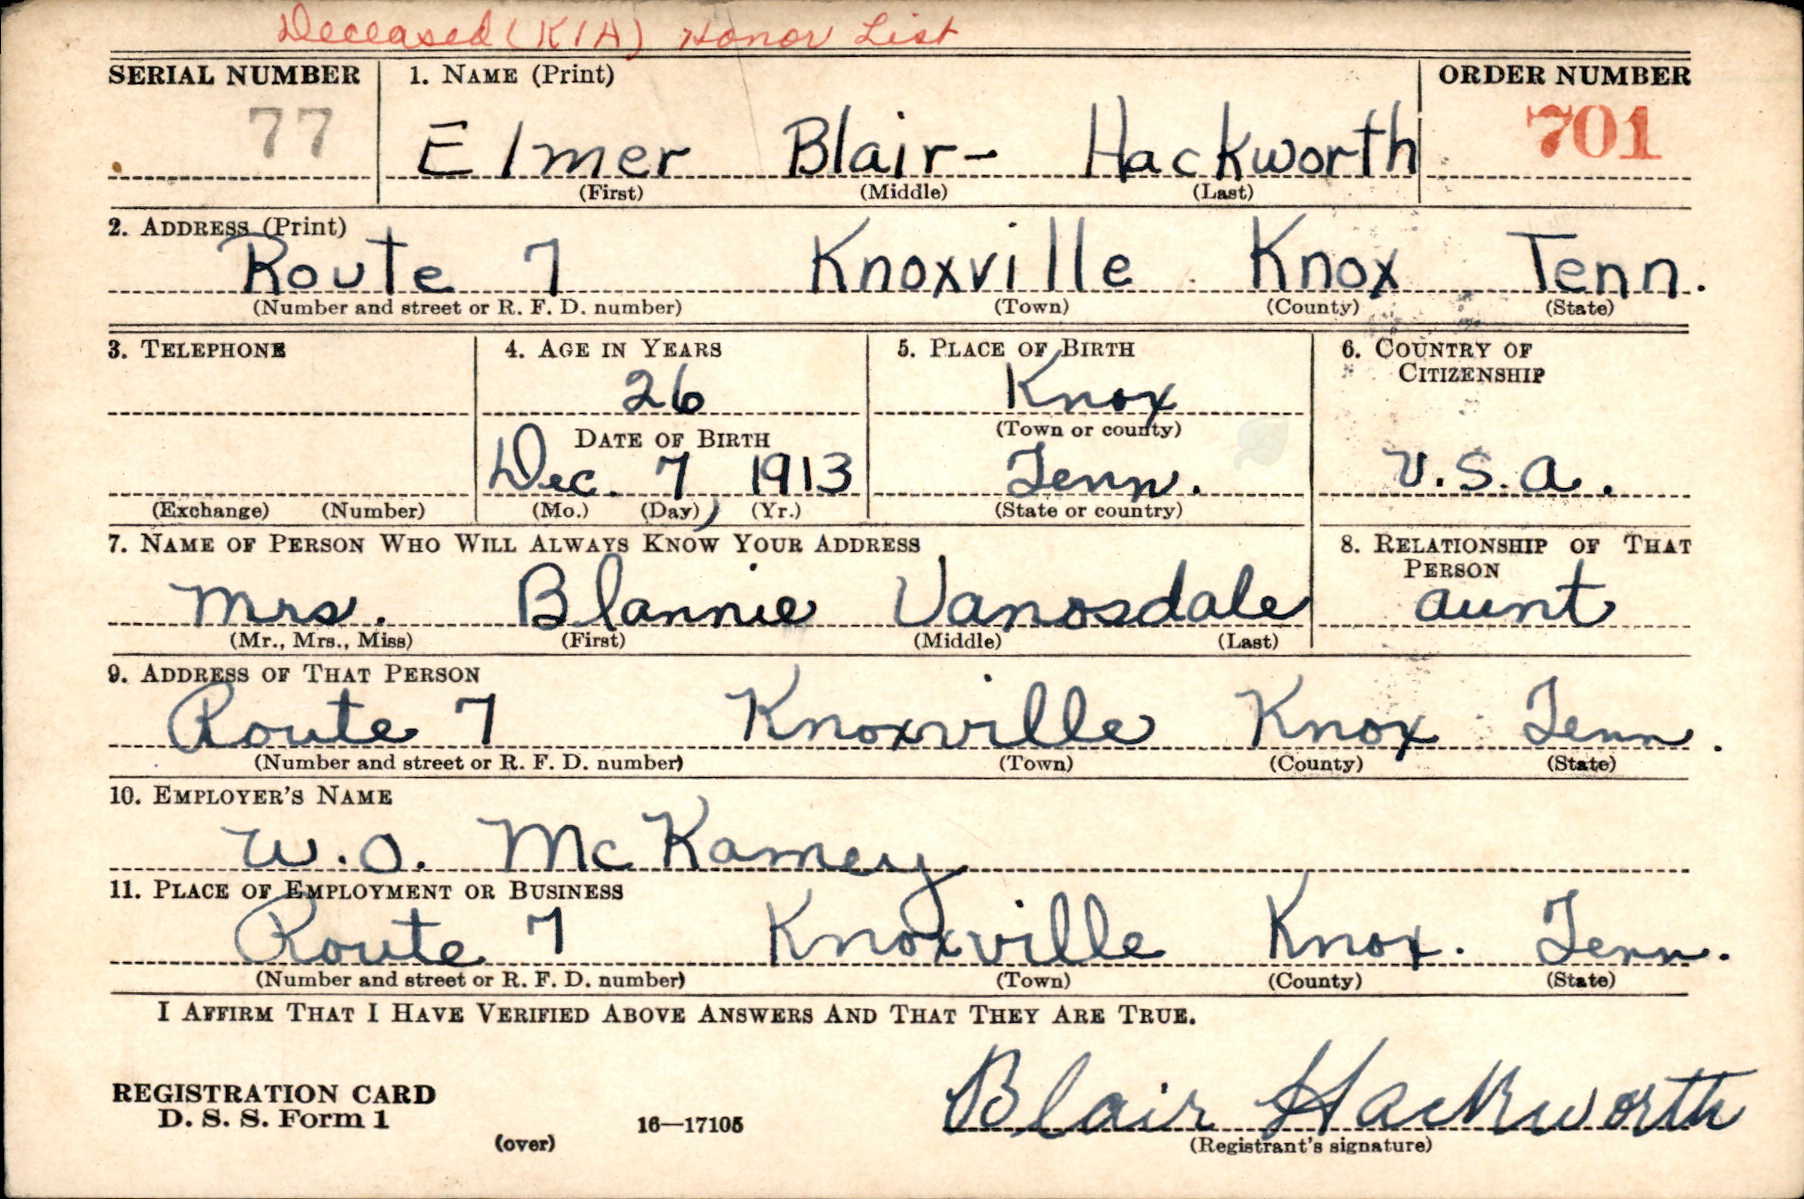 Deceased (KIA) Honor List
SERIAL NUMBER 1. NAME (Print) ORDER NUMBER
77 Elmer Blair- Hackworth 701
(First) (Middle) (Last)
2. ADDRESS (Print)
Route 7 Knoxville Knox Tenn.
(Number and street or R. F. D. number) (Town) (County) (State)
3. TELEPHONE 4. AGE IN YEARS 5. PLACE OF BIRTH 6. COUNTRY OF CITIZENSHIP
26 Knox
DATE OF BIRTH (Town or county)
Dec. 7, 1913 Tenn. U.S.A.
(Exchange) (Number) (Mo.) (Day) (Yr.) (State or country)
7. NAME OF PERSON WHO WILL ALWAYS KNOW YOUR ADDRESS 8. RELATIONSHIP OF THAT PERSON
Mrs. Blannie Vanosdale aunt
(Mr., Mrs., Miss) (First) (Middle) (Last)
9. ADDRESS OF THAT PERSON
Route 7 Knoxville Knox Tenn.
(Number and street or R. F. D. number) (Town) (County) (State)
10. EMPLOYER'S NAME
W.O. McKamey
11. PLACE OF EMPLOYMENT OR BUSINESS
Route 7 Knoxville Knox. Tenn.
(Number and street or R. F. D. number) (Town) (County) (State)
I AFFIRM THAT I HAVE VERIFIED ABOVE ANSWERS AND THAT THEY ARE TRUE.
Blair Hackworth
REGISTRATION CARD
D. S. S. Form 1 16—17105
(over) (Registrant's signature)